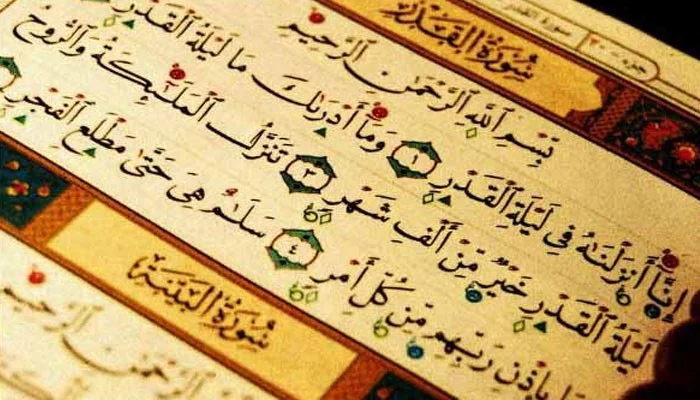 سورة القدر
جزء ٣٠
سُورَةُ القَدْرِ
بِسْمِ ٱللَّهِ ٱلرَّحْمَٰنِ ٱلرَّحِيمِ
إِنَّآ أَنزَلْنَٰهُ فِى لَيْلَةِ ٱلْقَدْرِ ١ وَمَآ أَدْرَىٰكَ مَا لَيْلَةُ ٱلْقَدْرِ
لَيْلَةُ ٱلْقَدْرِ خَيْرٌ مِّنْ أَلْفِ شَهْرٍ ٣ تَنَزَّلُ ٱلْمَلَٰٓئِكَةُ وَٱلرُّوحُ
بِإِذْنِ رَبِّهِم مِّن كُلِّ أَمْرٍ ٤ سَلَٰمٌ هِىَ حَتَّىٰ مَطْلَعِ ٱلْفَجْرِ
سُورَةُ البَيِّنَةِ
ٱلرَّحْمَٰنِ ٱلرَّحِيمِ